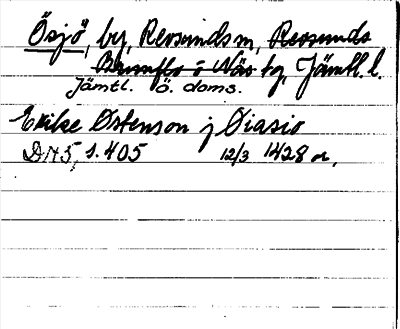 Ösjö, by, Revsunds sn, Revsunds
Brunflo o Näs tg, Jämtl. l.
Jämtl. ö. doms.
Erike Østenson j Øiasio
DN 5, s. 405 12/3 1428 or.